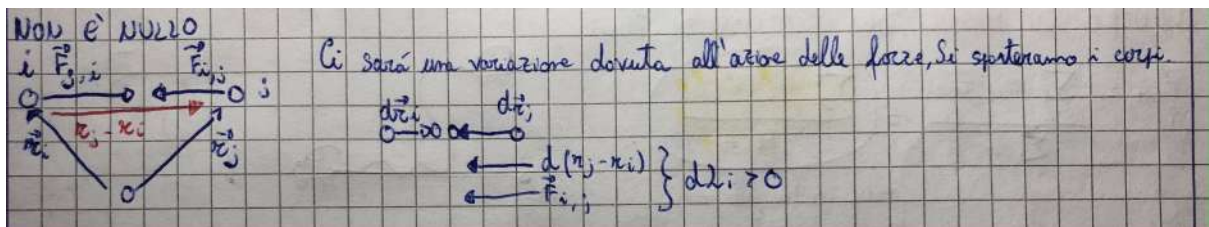 NON É NULLO
i F⃗j,i F⃗i,j j
Ci sará una variazione dovuta all'azione delle forze, Si sposteranno i corpi.
rj - ri
r⃗i r⃗j
dr⃗i dr⃗j
d(rj - ri)
F⃗i,j } dLi > 0